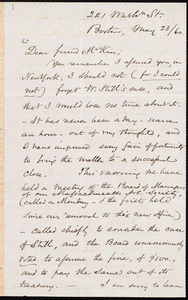 221 Wash'n St.
Boston, May 23/60
Dear friend McKim,
You remember I assured you, in
New York, I should not (for I could
not) forget W. Still's case, and
that I would lose no time about it.
- It has never been a day - scarce
an hour - out of my thoughts, and
I have improved every fair opportunity
to bring the matter to a successful
close. This morning we have
held a meeting of the Board of Managers
of our Massachusetts A. S. Society,
(called on Monday - the first held
since our removal to this new office)
- called chiefly to consider the case
of Still, and the Board unanimously
voted to assume the fine, of $100,
and to pay the same out of its
treasury. - I am sorry to learn